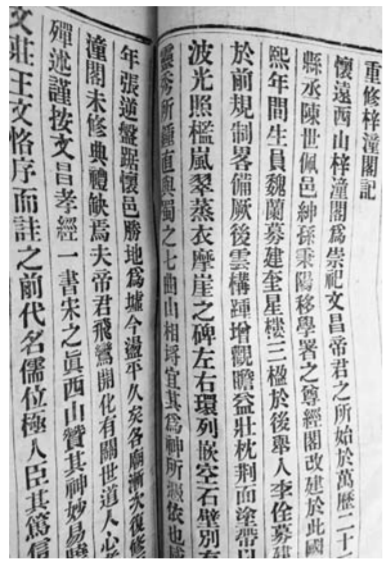 重修梓潼閣記
懷遠西山梓潼閣爲崇祀文昌帝君之所始於萬歷二十
縣丞陳世佩邑紳孫秉陽移學署之尊經閣改建於此國
熙年間生員魏蘭募建奎星樓三楹於後舉人李佺募建
於前規制畧備厥後雲構踵增觀瞻益壯枕荆面塗帶以
波光照檻嵐翠蒸衣摩崖之碑左右環列嵌空石壁別有
靈秀所鍾直與蜀之七曲山相埒宜其爲神所憑依也
年張逆盤踞懷邑勝地爲墟今盪平久矣各廟漸次復修
潼閣未修典禮缺焉夫帝君飛鸞開化有關世道人心
殫述謹按文昌孝經一書宋之眞西山贊其神妙易曉
文莊王文恪序而註之前代名儒位極人臣其篤信